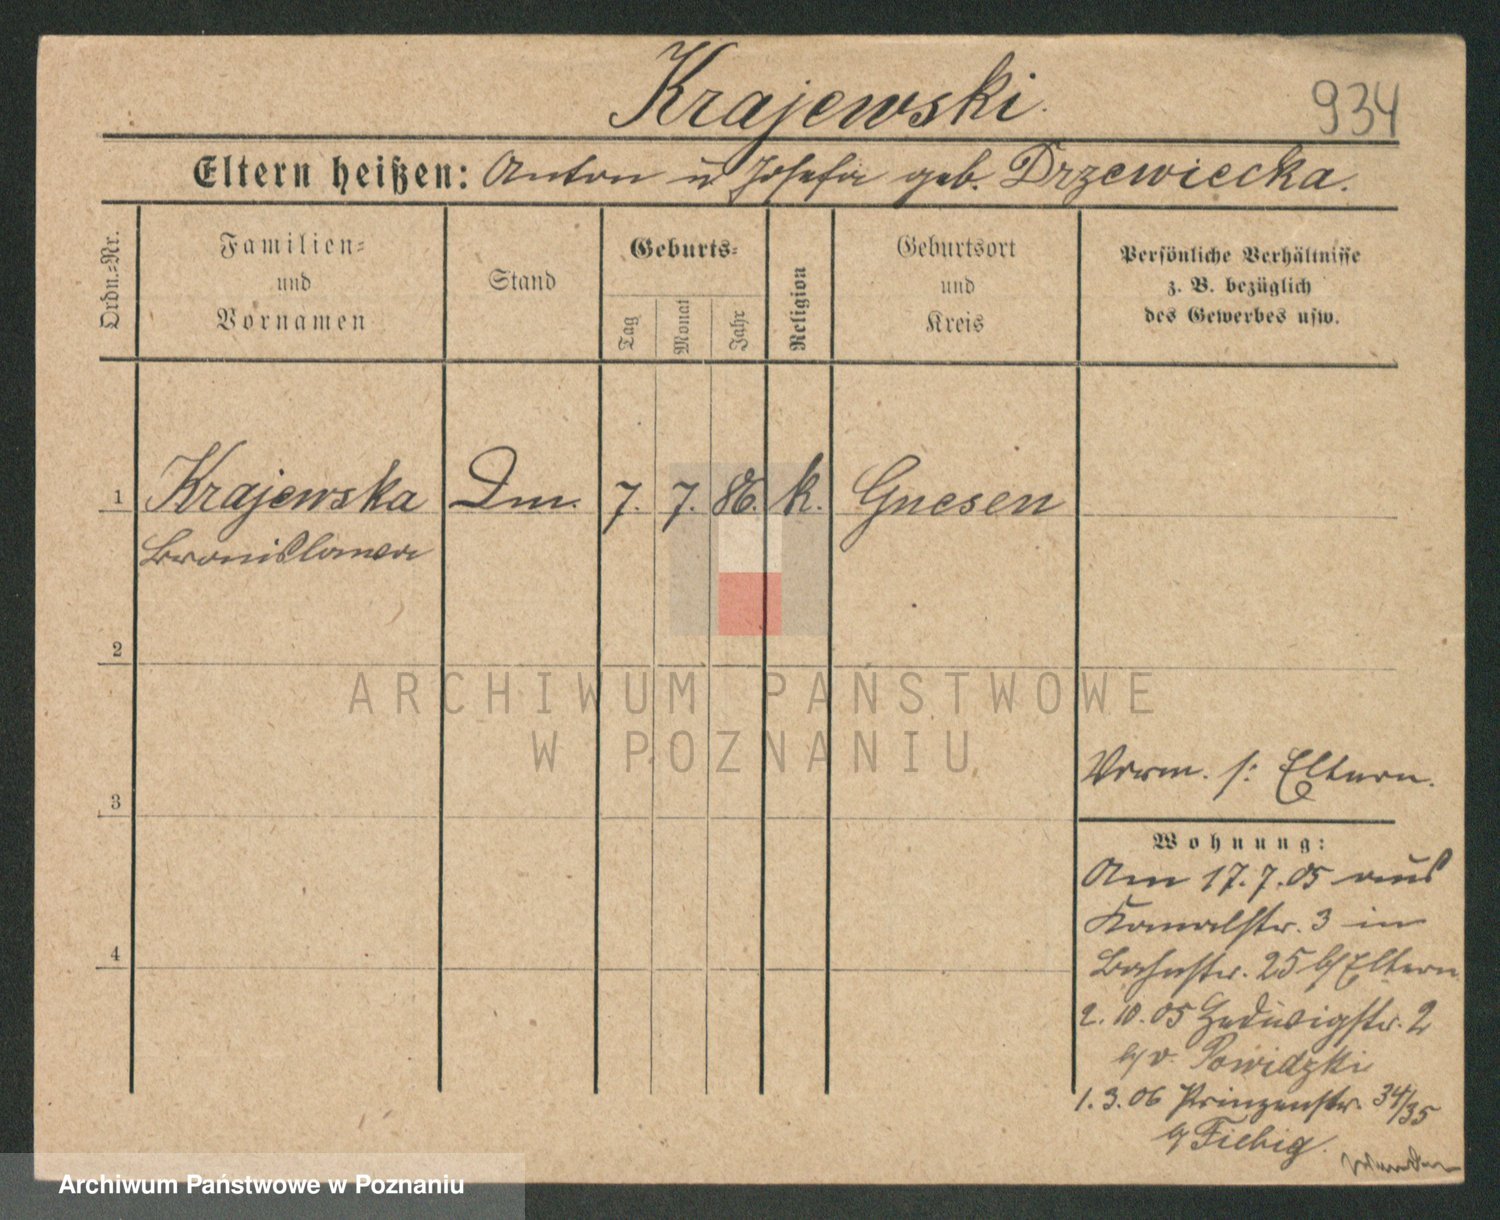 Krajewski.
934
Eltern heißen: Anton u Josefa geb. Drzewiecka.
Ordn.=Nr.
Familien=
und
Vornamen
Stand
Geburts=
Tag
Monat
Jahr
Religion
Geburtsort
und
Kreis
Persönliche Verhältnisse
z. B. bezüglich
des Gewerbes usw.
1 Krajewska Dm. 7. 7. 86. k. Gnesen
Bronislawa
2
ARCHIWUM PAŃSTWOWE
W POZNANIU
Vorm. s: Eltern.
3
Wohnung:
Am 17.7.05 aus
Kanalstr. 3 in
4
Bahnstr. 25 b/ Eltern
2.10.05 Hedwigstr. 2
b/ v. Powidzki
1.3.06 Prinzenstr. 34/35
b/ Fiebig.
wenden
Archiwum Państwowe w Poznaniu